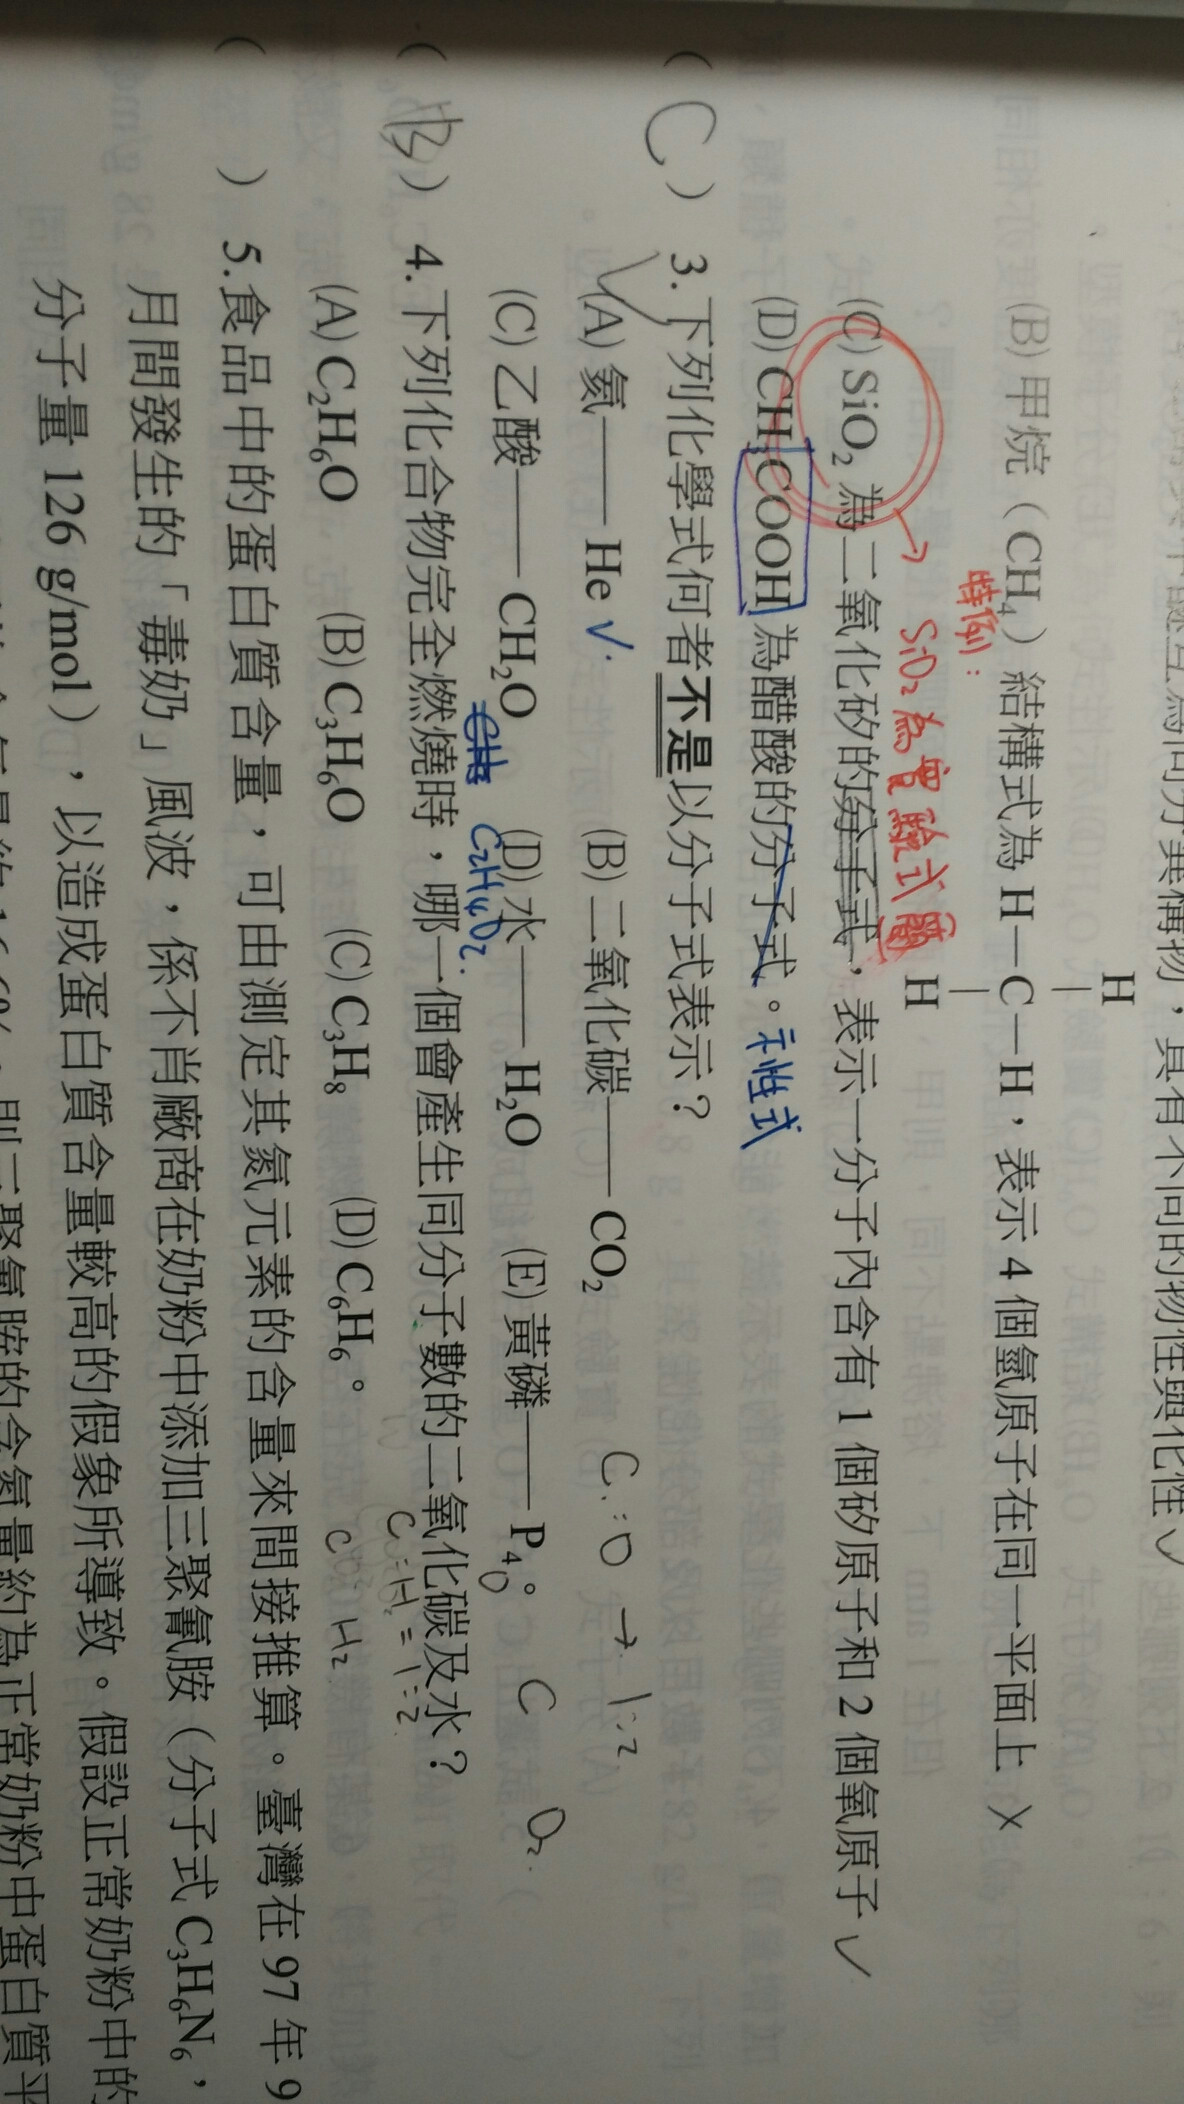 H
(B)甲烷（CH₄）結構式為 H—C—H，表示 4 個氫原子在同一平面上 ×
H
特例：
SiO₂為實驗式
(C) SiO₂ 為二氧化矽的分子式，表示一分子內含有 1 個矽原子和 2 個氧原子 ✓
(D) CH₃COOH 為醋酸的分子式。示性式
( C ) 3. 下列化學式何者不是以分子式表示？
(A) 氦——He ✓ (B) 二氧化碳——CO₂
C:O → 1:2
(C) 乙酸——CH₂O (D) 水——H₂O (E) 黃磷——P₄。
C₂H₄O₂
C O₂
( B ) 4. 下列化合物完全燃燒時，哪一個會產生同分子數的二氧化碳及水？
C:H = 1:2
(A) C₂H₆O (B) C₃H₆O (C) C₃H₈ (D) C₆H₆。
C H₂
( ) 5. 食品中的蛋白質含量，可由測定其氮元素的含量來間接推算。臺灣在 97 年 9
月間發生的「毒奶」風波，係不肖廠商在奶粉中添加三聚氰胺（分子式 C₃H₆N₆，
分子量 126 g/mol），以造成蛋白質含量較高的假象所導致。假設正常奶粉中的